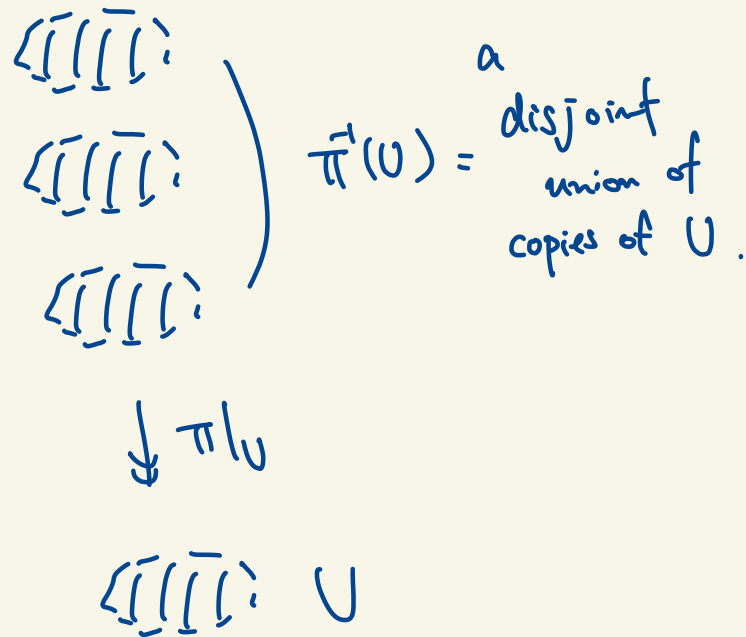 π⁻¹(U) = a
disjoint
union of
copies of U.
π|U
U